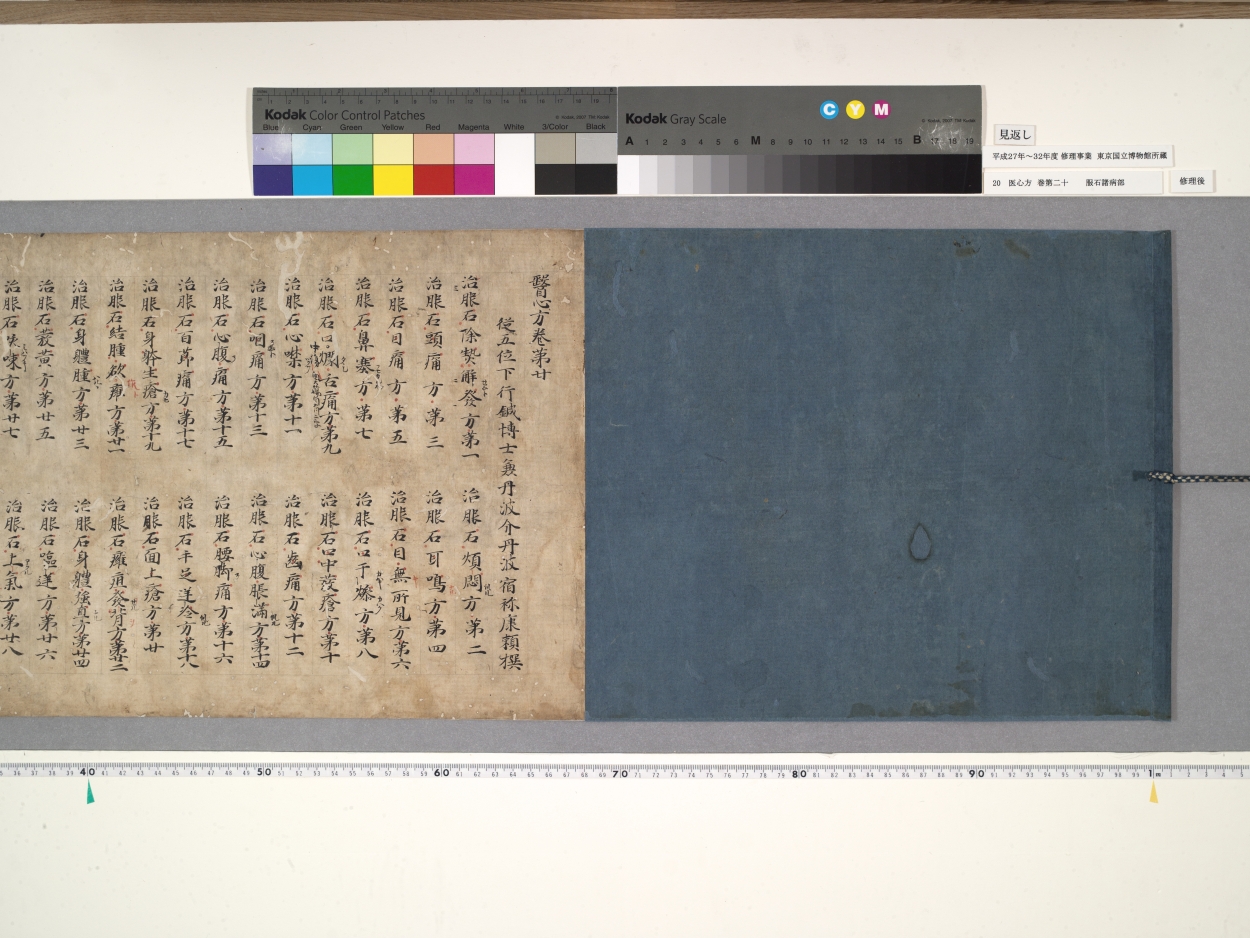 Kodak Color Control Patches
Blue Cyan Green Yellow Red Magenta White 3/Color Black
Kodak Gray Scale
C Y M
A 1 2 3 4 5 6 M 8 9 10 11 12 13 14 15 B 17 18 19
見返し
平成27年～32年度 修理事業 東京国立博物館所蔵
20 医心方 巻第二十 服石諸病部
修理後
醫心方卷第廿
從五位下行鍼博士兼丹波介丹波宿祢康頼撰
治服石除熱解發方第一
治服石煩悶方第二
治服石頭痛方第三
治服石耳鳴方第四
治服石目痛方第五
治服石目無所見方第六
治服石鼻塞方第七
治服石口干燥方第八
治服石口爛舌痛方第九
治服石口中發瘡方第十
治服石心噤方第十一
治服石齒痛方第十二
治服石咽痛方第十三
治服石心腹脹滿方第十四
治服石心腹痛方第十五
治服石腰脚痛方第十六
治服石百節痛方第十七
治服石手足逆冷方第十八
治服石身體生瘡方第十九
治服石面上瘡方第廿
治服石結腫欲癰方第廿一
治服石癰疽發背方第廿二
治服石身體腫方第廿三
治服石身體強直方第廿四
治服石發黃方第廿五
治服石嘔逆方第廿六
治服石咳嗽方第廿七
治服石上氣方第廿八
40 50 60 70 80 90 1m